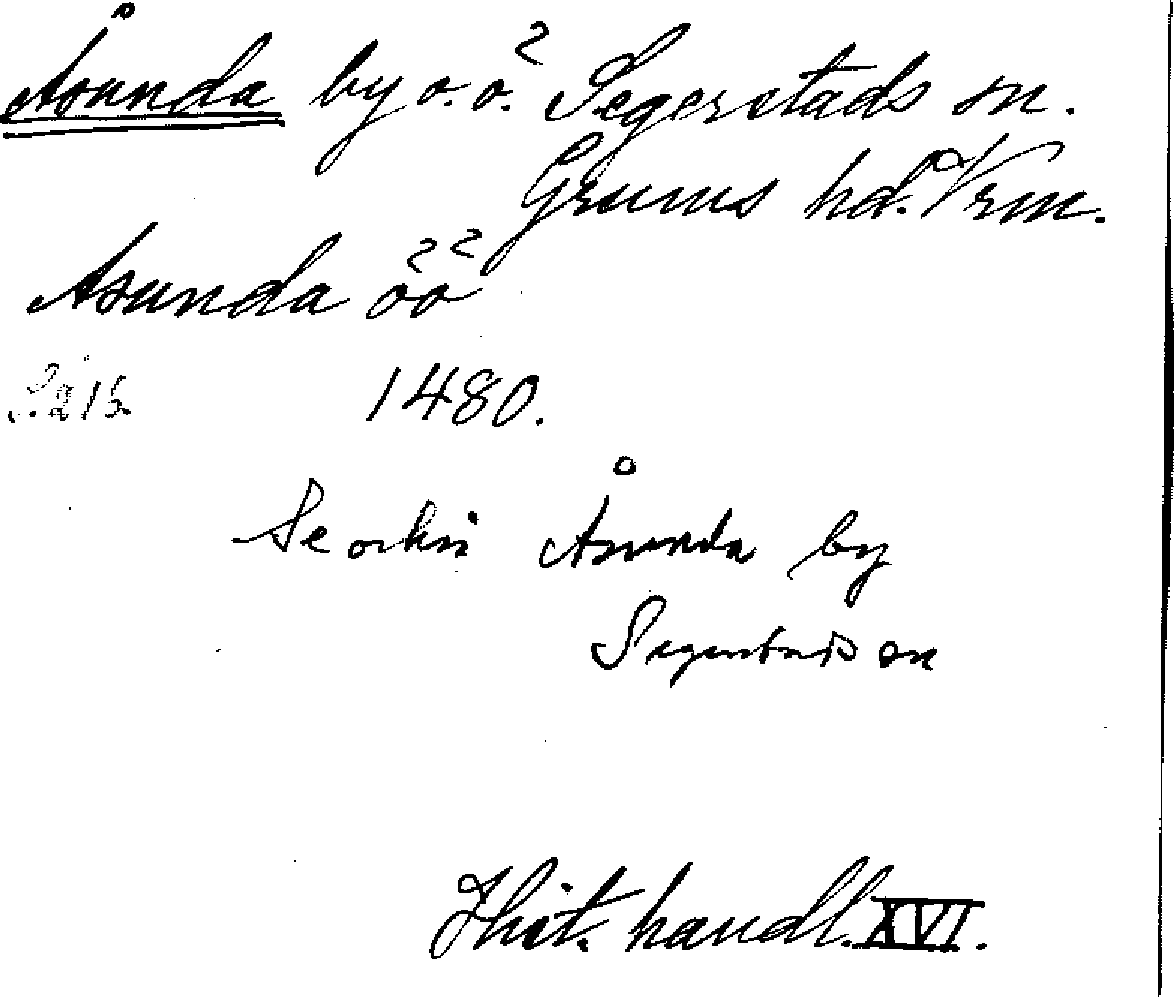 Åsunda by o. ö.² Segerstads sn.
Grums hd. Vrm.
Asunda öö
S. 215. 1480.
Se också Åsunda by
Segerstads sn
Hist. handl. XVI.